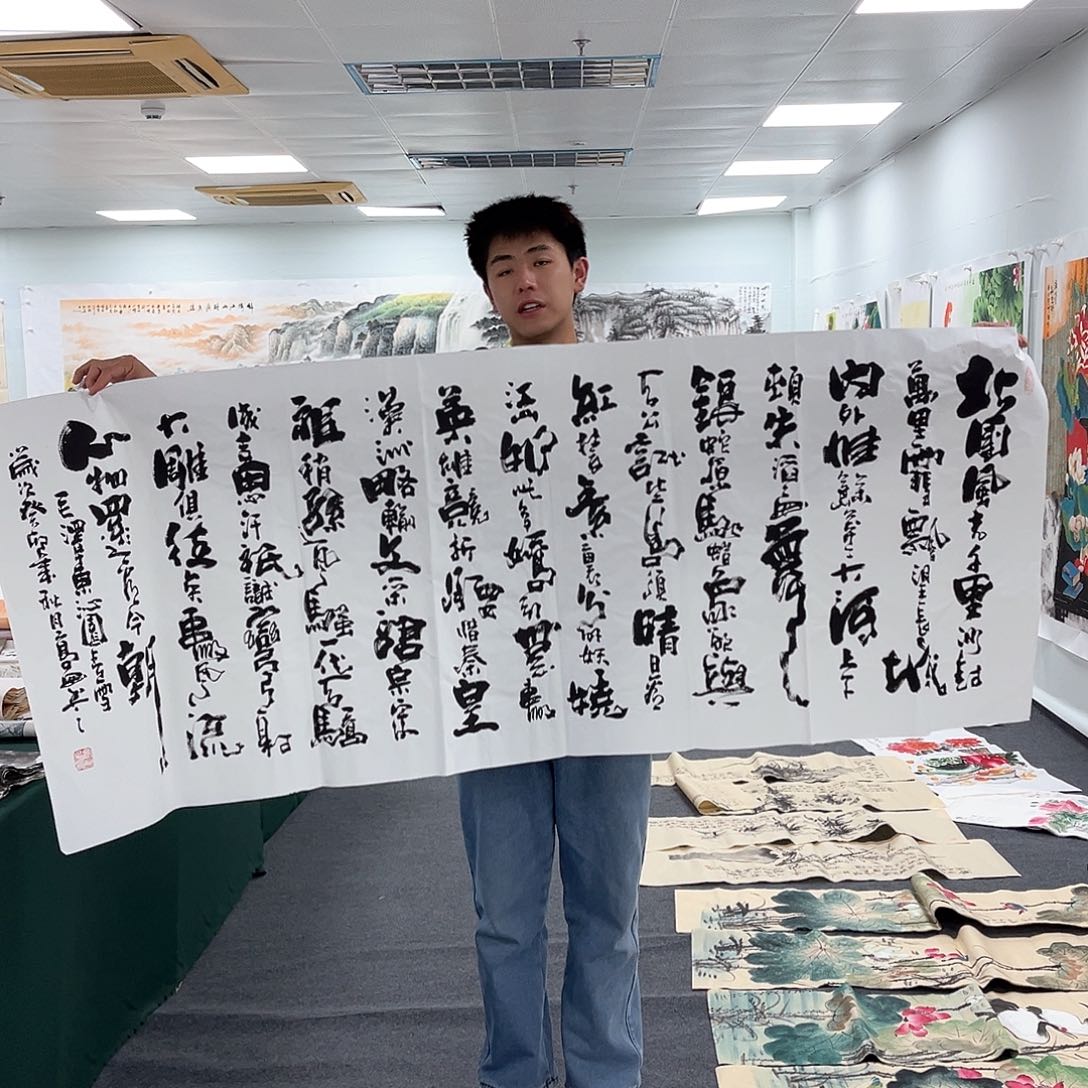 北國風光千里冰封
萬里雪飄望長城
內外惟餘莽莽大河上下
頓失滔滔山舞
銀蛇原馳蠟象欲與
天公試比高須晴日看
紅裝素裹分外妖嬈
江山如此多嬌引無數
英雄競折腰惜秦皇
漢武略輸文采唐宗宋
祖稍遜風騷一代天驕
成吉思汗祇識彎弓射
大雕俱往矣數風流
人物還看今朝
毛澤東沁園春雪
歲次癸卯年秋月